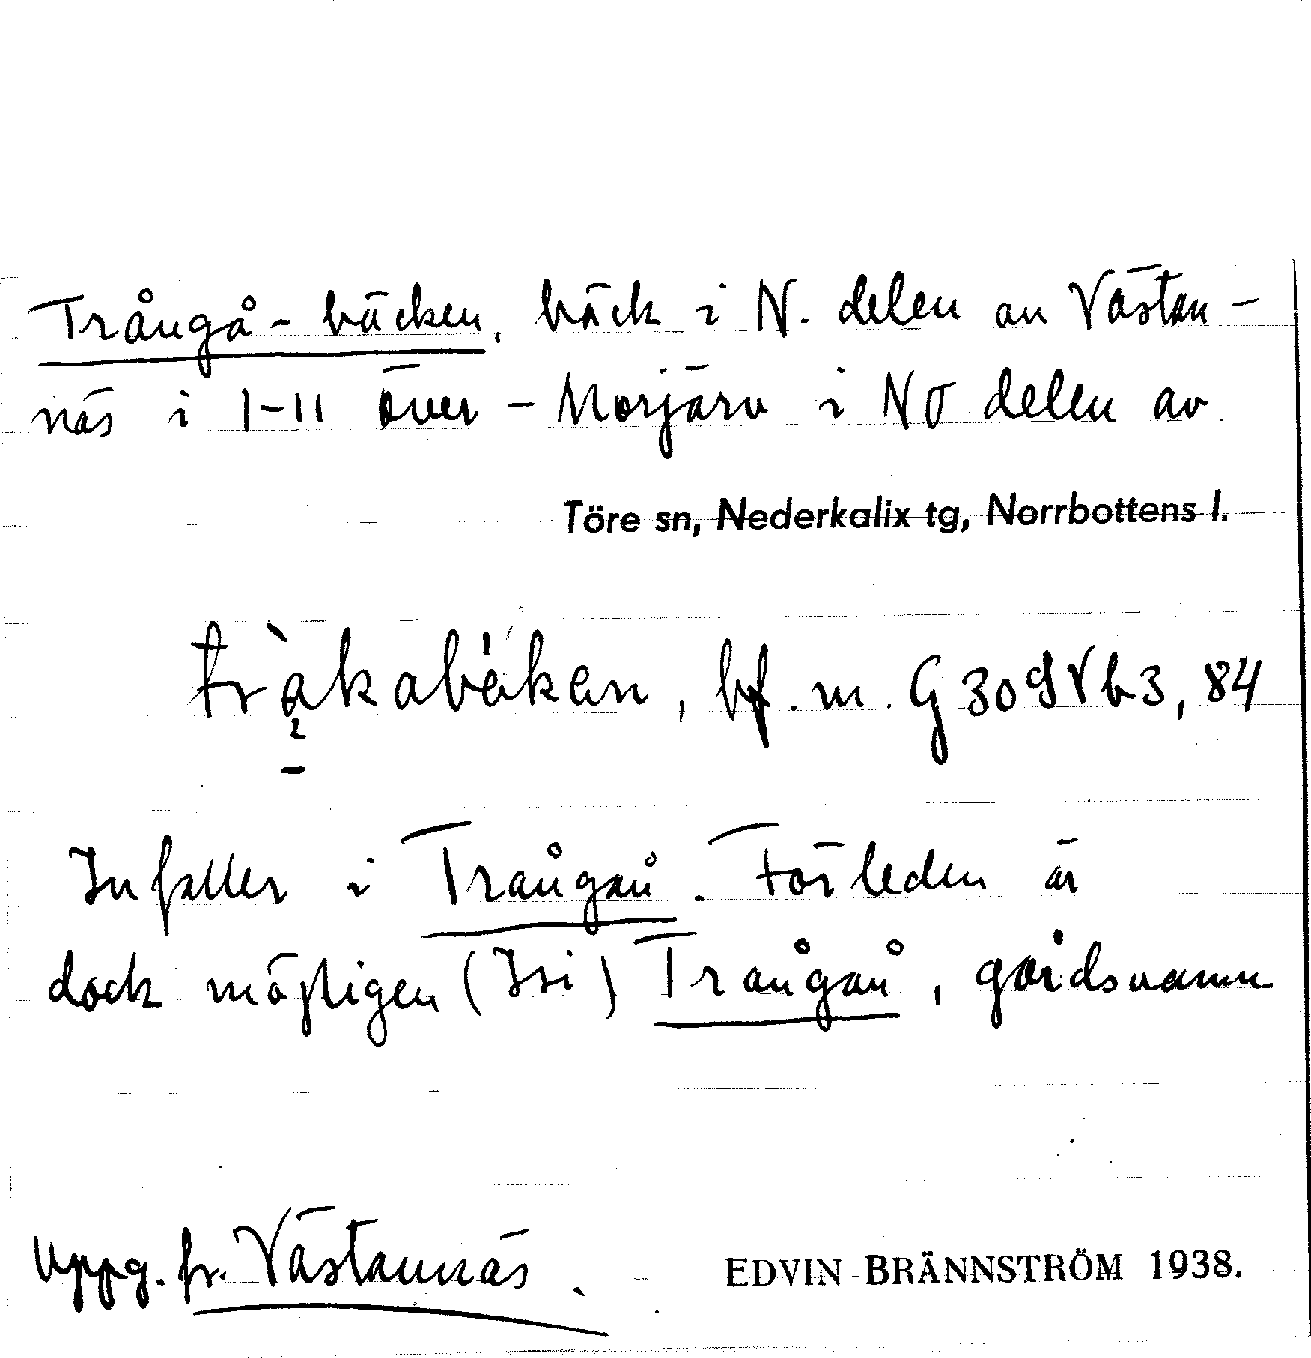 Trångå-bäcken, bäck i N. delen av Västan-
näs i 1-11 Över-Morjärv i NO delen av
Töre sn, Nederkalix tg, Norrbottens l.
bf. m. G309Vb3, 84
Infaller i Trångån. Förleden är
dock möjligen (Isi) Trångån, gårdsnamn
Uppg. fr. Västannäs.
EDVIN BRÄNNSTRÖM 1938.